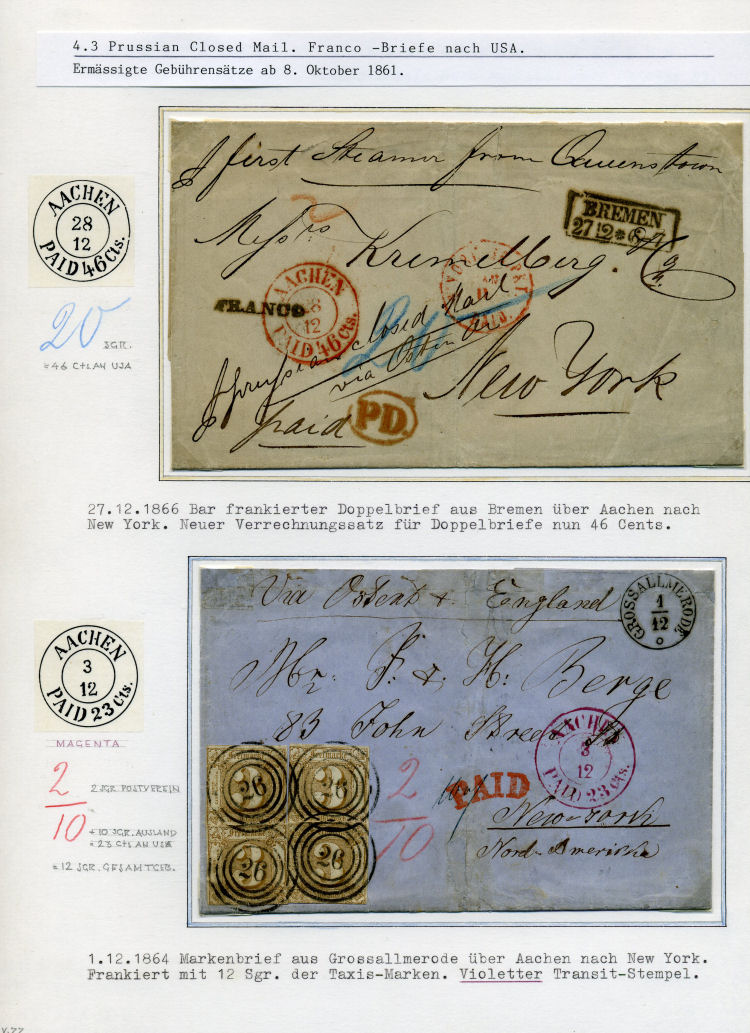 4.3 Prussian Closed Mail. Franco -Briefe nach USA.
Ermässigte Gebührensätze ab 8. Oktober 1861.
AACHEN
28
12
PAID 46 Cts.
20 SGR.
= 46 CTS AN USA
p first Steamer from Queenstown
BREMEN
27 12 * 6
Messrs Kremelberg
AACHEN
28
12
PAID 46 Cts.
FRANCO
p prussian closed Mail
via Ostende
New York
paid
PD.
27.12.1866 Bar frankierter Doppelbrief aus Bremen über Aachen nach
New York. Neuer Verrechnungssatz für Doppelbriefe nun 46 Cents.
AACHEN
3
12
PAID 23 Cts.
MAGENTA
2
10
2 SGR. POSTVEREIN
+ 10 SGR. AUSLAND
= 23 CTS AN USA
= 12 SGR. GESAMTGEB.
Via Ostent & England
GROSSALLMERODE
1
12
Mr. F. & H. Berge
83 John Street
AACHEN
3
12
PAID 23 Cts.
26
26
26
26
2
10
PAID
New-York
Nord-Amerika
1.12.1864 Markenbrief aus Grossallmerode über Aachen nach New York.
Frankiert mit 12 Sgr. der Taxis-Marken. Violetter Transit-Stempel.